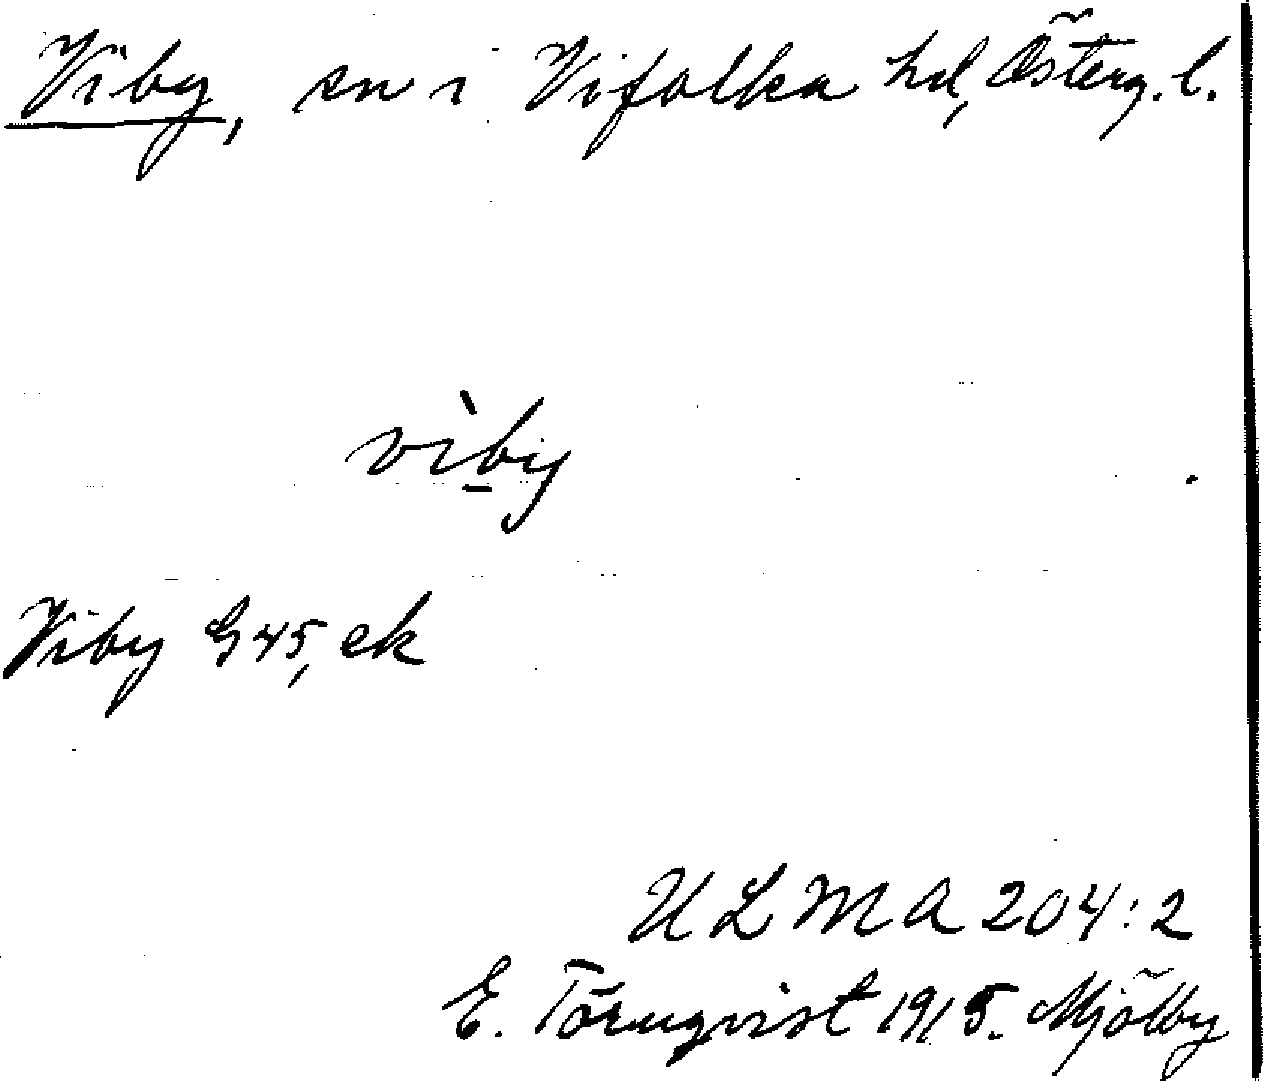 Viby, sn i Vifolka hd, Österg. l.
vìby
Viby G45, ek
ULMA 204:2
E. Törnqvist 1915. Mjölby